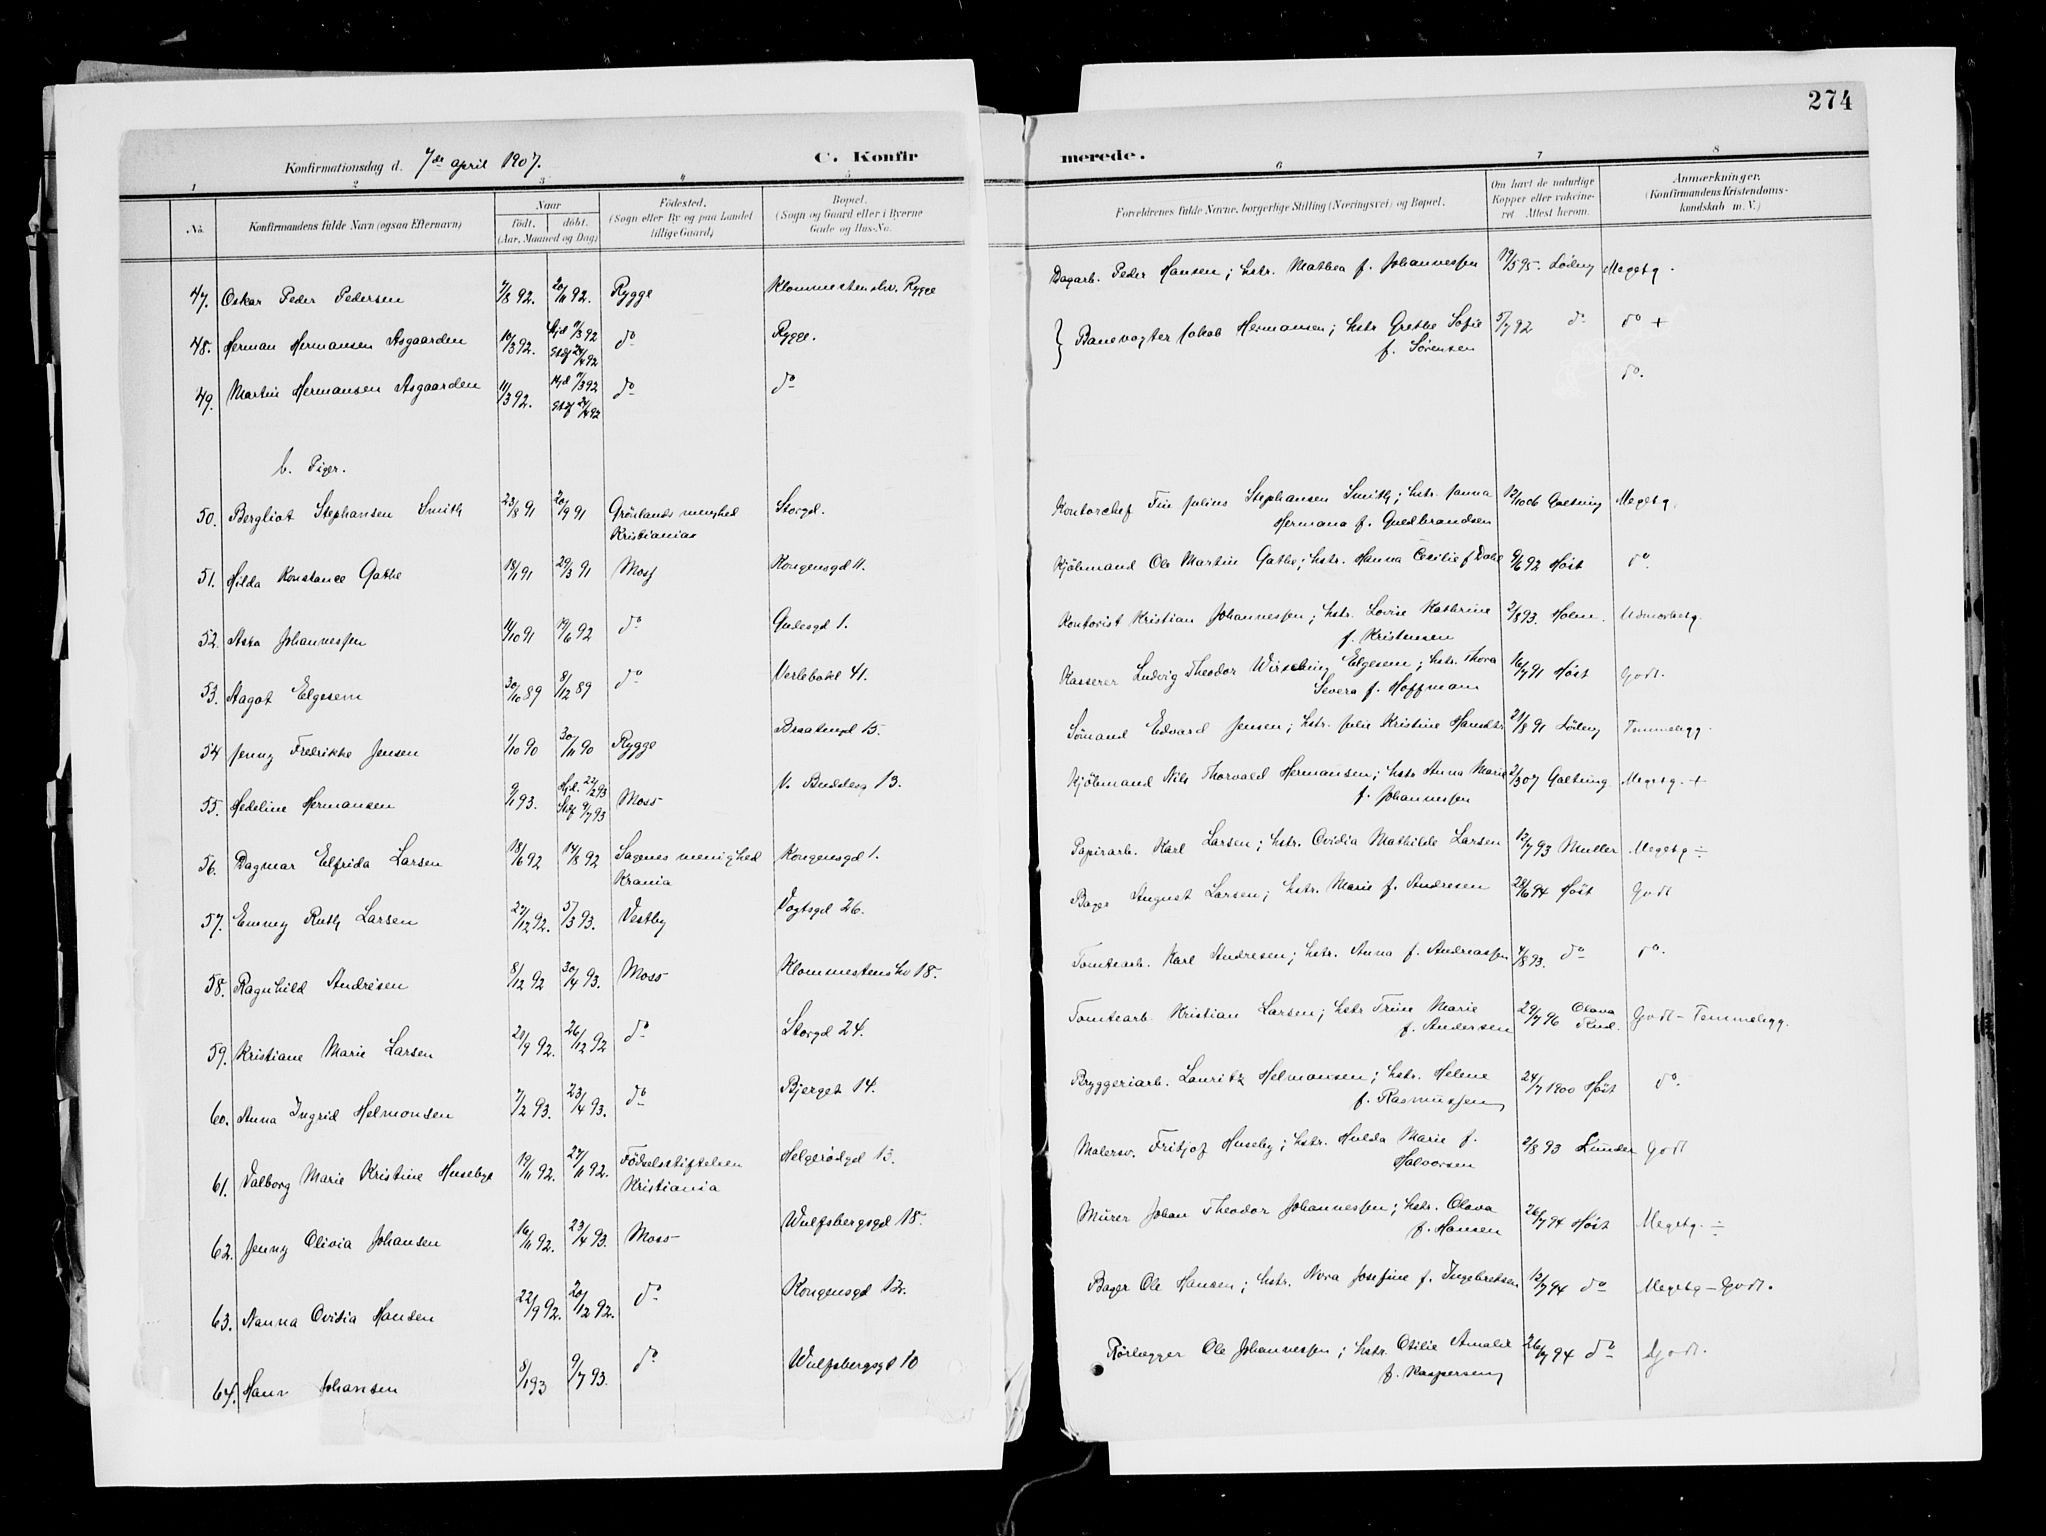 274
Konfirmationsdag d. 7de april 1907. C. Konfirmerede.
1 2 3 4 5 6 7 8
No. Konfirmandens fulde Navn (ogsaa Efternavn) Naar født. døbt. (Aar, Maaned og Dag) Fødested. (Sogn eller By og paa Landet tillige Gaard) Bopæl. (Sogn og Gaard eller i Byerne Gade og Hus-No. Forældrenes fulde Navne, borgerlige Stilling (Næringsvei) og Bopæl. Om havt de naturlige Kopper eller vakcineret Attest herom. Anmærkninger. (Konfirmandens Kristendomskundskab m. V.)
47. Oskar Peder Pedersen 7/8 92. 20/11 92. Rygge Klommestenshv. Rygge Dagarb. Peder Hansen; hstr. Mathea f. Johannessen 19/5 95. Löding Megetg.
48. Herman Hermansen Asgaarden 10/3 92. Hjd 11/3 92 Stsf 24/4 92 do Rygge. Banevogter Jakob Hermansen; hstr Grethe Sofie f. Sörensen 5/7 92 do do +
49. Martin Hermansen Asgaarden 11/3 92. Hjd 11/3 92 Stsf 24/4 92 do do do.
b. Piger.
50. Bergliot Stephansen Smith 23/8 91 20/9 91 Grönlands menghed Kristiania Storgd. Kontorchef Fin Julius Stephansen Smith; hstr. Janna Hermana f. Guldbrandsen 12/10 06 Gaetung Megetg.
51. Hilda Konstance Gathe 18/1 91 29/3 91 Moss Kongensgd 11. Kjöbmand Ole Martin Gathe; hstr. Hanna Cecilie f Dahl 9/6 92 Höst do.
52. Asta Johannessen 14/10 91 19/6 92 do Gudesgd 1. Kontorist Kristian Johannessen; hstr. Lovise Kathrine f. Kristensen 2/8 93. Holm. Udmerketg.
53. Aagot Elgesem 30/10 89 8/12 89 do Verlebakl 41. Kasserer Ludvig Theodor Wirsching Elgesem; hstr. Thora Severa f. Hoffmann 16/7 91 Höst Godt.
54 Jenny Fredrikke Jensen 1/10 90 30/11 90 Rygge Braatengd 15. Sömand Edvard Jensen; hstr. Julie Kristine Hansdtr 21/8 91 Löding Temmeligg.
55. Hedeline Hermansen 9/1 93. Hjd. 22/2 93 Stsf 9/7 93 Moss V. Buddeg 13. Kjöbmand Nils Thorvald Hermansen; hstr Anna Marie f. Johannessen 2/3 07 Gaetung Megetg. +
56. Dagmar Elfrida Larsen 18/6 92 14/8 92 Sagenes menighed Krania Kongensgd 1. Papirarb. Karl Larsen; hstr. Ovidia Mathilde Larsen 12/7 93 Muller Megetg ÷
57. Emmy Ruth Larsen 27/12 92. 5/3 93. Vestby Vogtsgd 26. Bager August Larsen; hstr. Marie f. Andresen 28/6 94 Höst Godt
58. Ragnhild Andrésen 8/12 92 30/4 93. Moss Klommestenshv 18. Tomtearb. Karl Andresen; hstr. Anna f. Andreassen 4/8 93. do do.
59. Kristiane Marie Larsen 20/9 92. 26/12 92 do Storgd 24. Tomtearb. Kristian Larsen; hstr Trine Marie f. Andersen 29/7 96 Olava Rud. Godt – Temmeligg.
60. Anna Ingrid Helmonsen 7/2 93. 23/4 93. do Bjerget 14. Bryggeriarb. Lauritz Helmansen; hstr. Helene f. Rasmussen 24/7 1900 Höst do.
61. Valborg Marie Kristine Huseby 19/11 92. 27/11 92. Födselsstiftelsen Kristiania Helgerödgd 13. Malersv. Fritjof Huseby; hstr. Hulda Marie f. Halvorsen 2/8 93 Lunder Godt
62. Jenny Olivia Johansen 16/11 92. 23/4 93. Moss Wulfsbergsgd 18. Murer Johan Theodor Johannessen; hstr. Olava f. Hansen 26/7 94 Höst Megetg. ÷
63. Nanna Ovidia Hansen 22/9 92. 20/12 92. do Kongensgd 12. Bager Ole Hansen; hstr. Nora Josefine f. Ingebretsen 12/7 94 do Megetg – Godt.
64. Hans Johansen 8/1 93 9/7 93. do Wulfsbergsgd 10 Rörlægger Ole Johannessen; hstr. Otilie Amalie f. Kaspersen 26/7 94 do Godt.